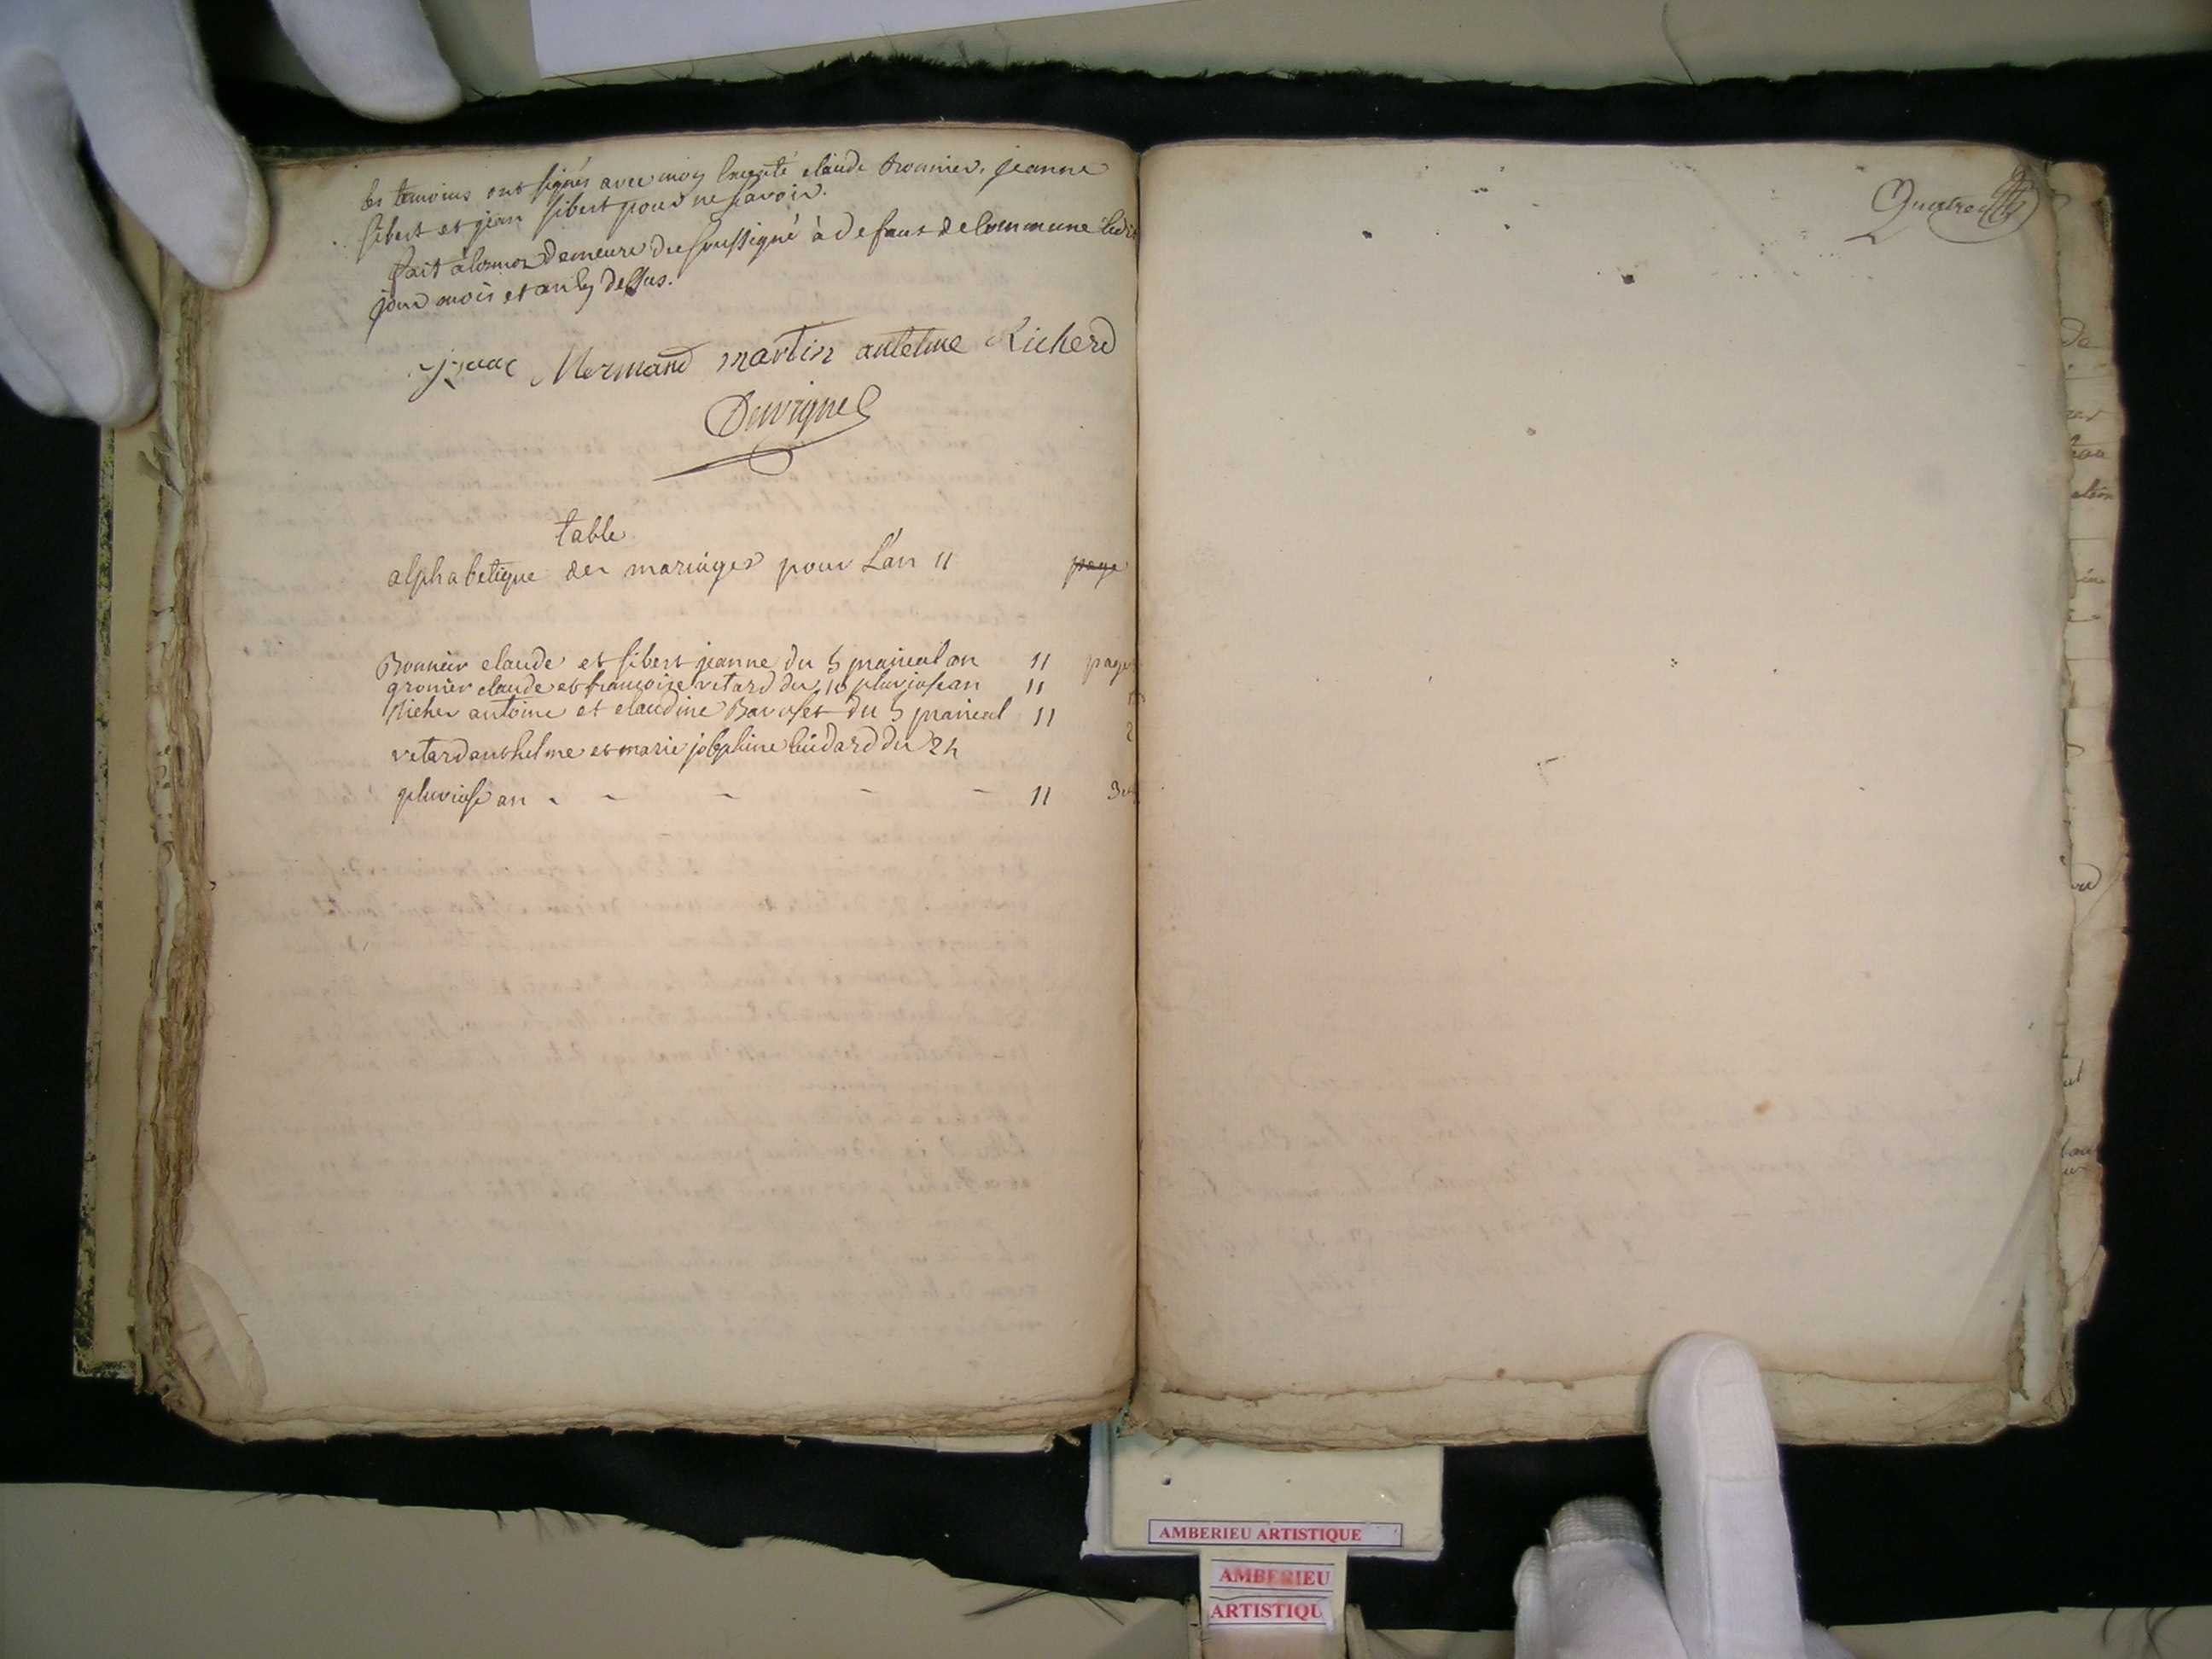 les temoins ont signés avec moy Excepté claude Bonnier, jeanne
sibert et jean sibert pour ne savoir.
fait à demeure du soussigné à defaut de Commune ledit
jour mois et an cy dessus.
Mermand martin antelme Richerd
Duvigne
table
alphabetique des mariages pour L'an 11 page
Bonnier claude et sibert jeanne du 5 prairial an 11 page
gronier claude et francoise vetard du pluviose an 11
Richer antoine et claudine du 5 prairial 11 2
vetard anthelme et marie josephine du 24
pluviose an - - - - - 11 3
AMBERIEU ARTISTIQUE
AMBERIEU
ARTISTIQU